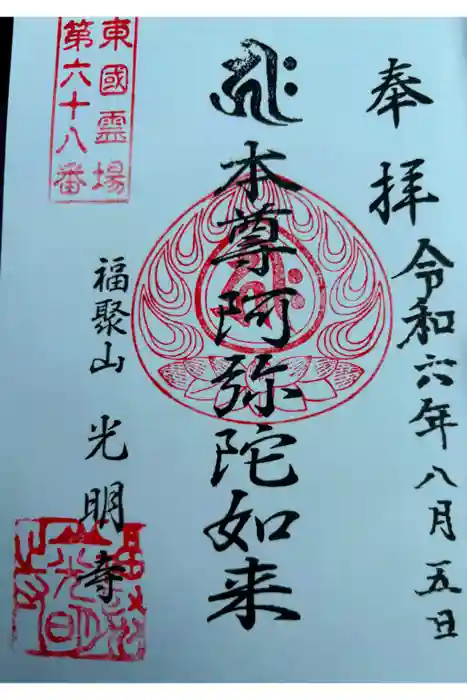 奉拝
令和六年八月五日
本尊阿弥陀如来
東國霊場
第六十八番
福聚山 光明寺